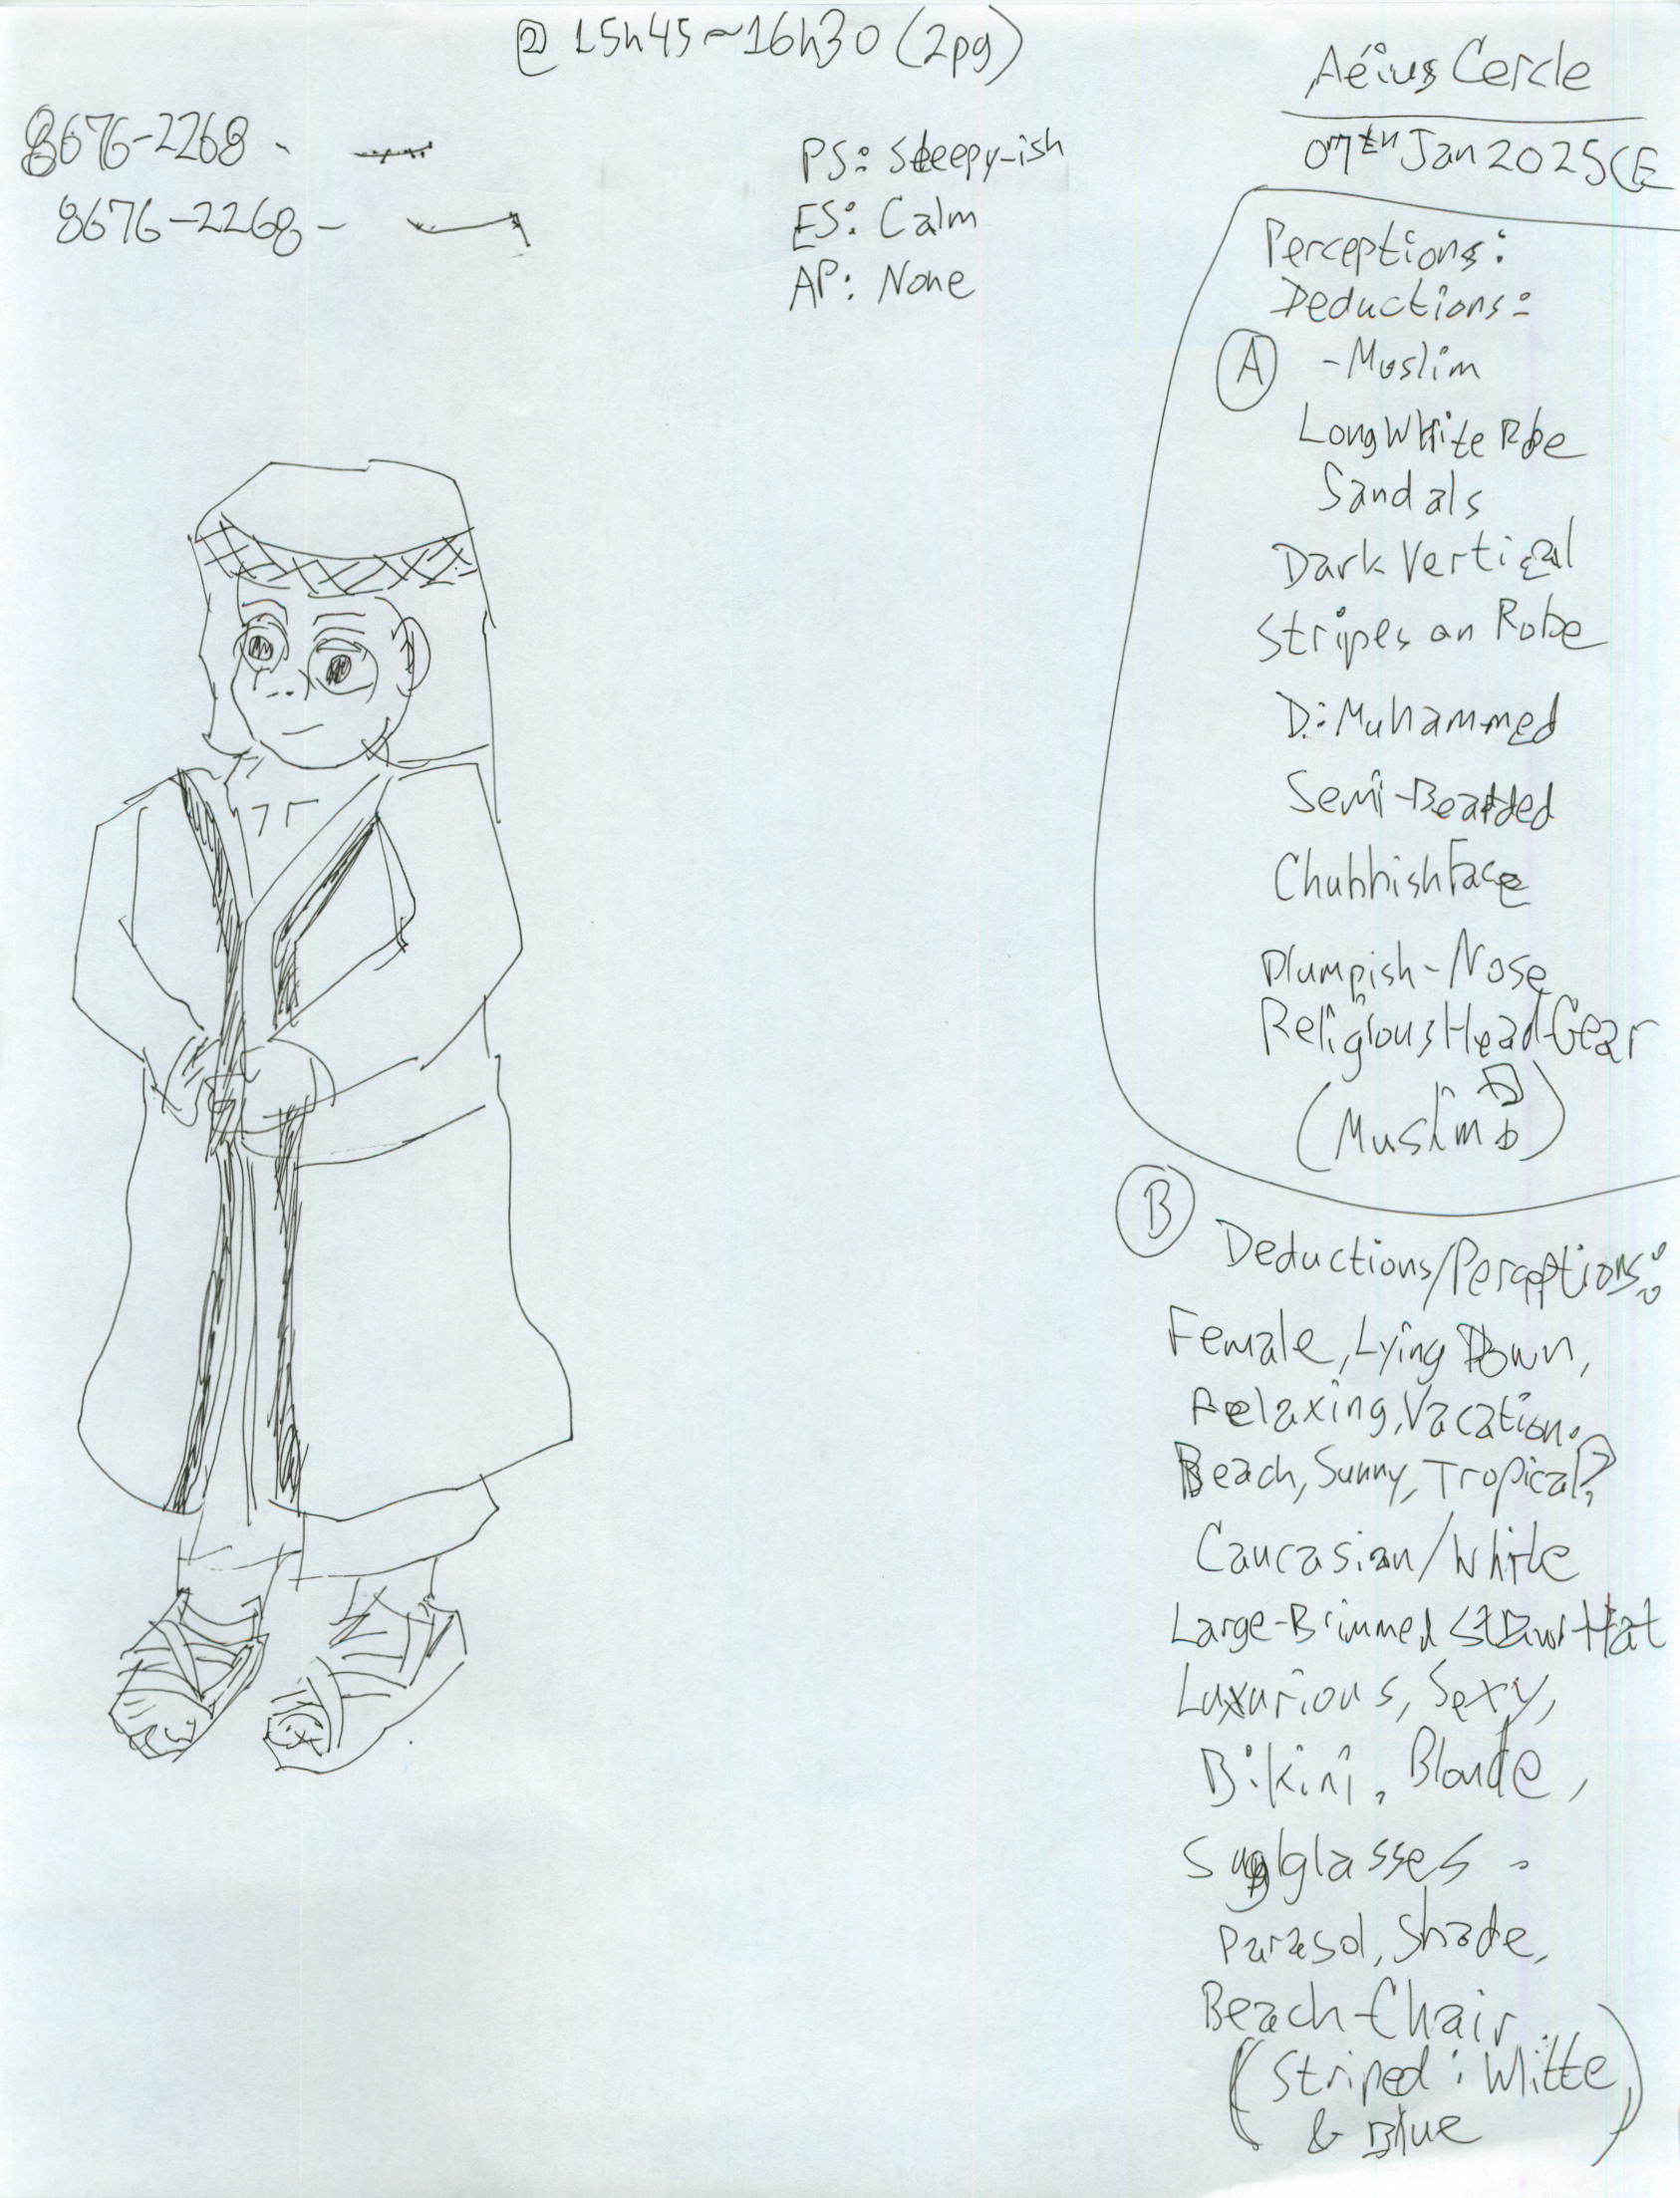 @ 15h45~16h30 (2pg)
Aéius Cercle
07th Jan 2025CE
8676-2268-
8676-2268-
PS: Sleepy-ish
ES: Calm
AP: None
Perceptions:
Deductions:
A -Muslim
Long White Robe
Sandals
Dark Vertical
Stripes on Robe
D: Muhammed
Semi-Bearded
Chubbish Face
Plumpish-Nose
Religious Head Gear
(Muslim)
B
Deductions/Perceptions:
Female, Lying Down,
Relaxing, Vacation.
Beach, Sunny, Tropical?
Caucasian/White
Large-Brimmed Straw Hat
Luxurious, Sexy,
Bikini, Blonde,
Sunglasses
Parasol, Shade,
Beach-Chair
(Striped: White
& Blue)